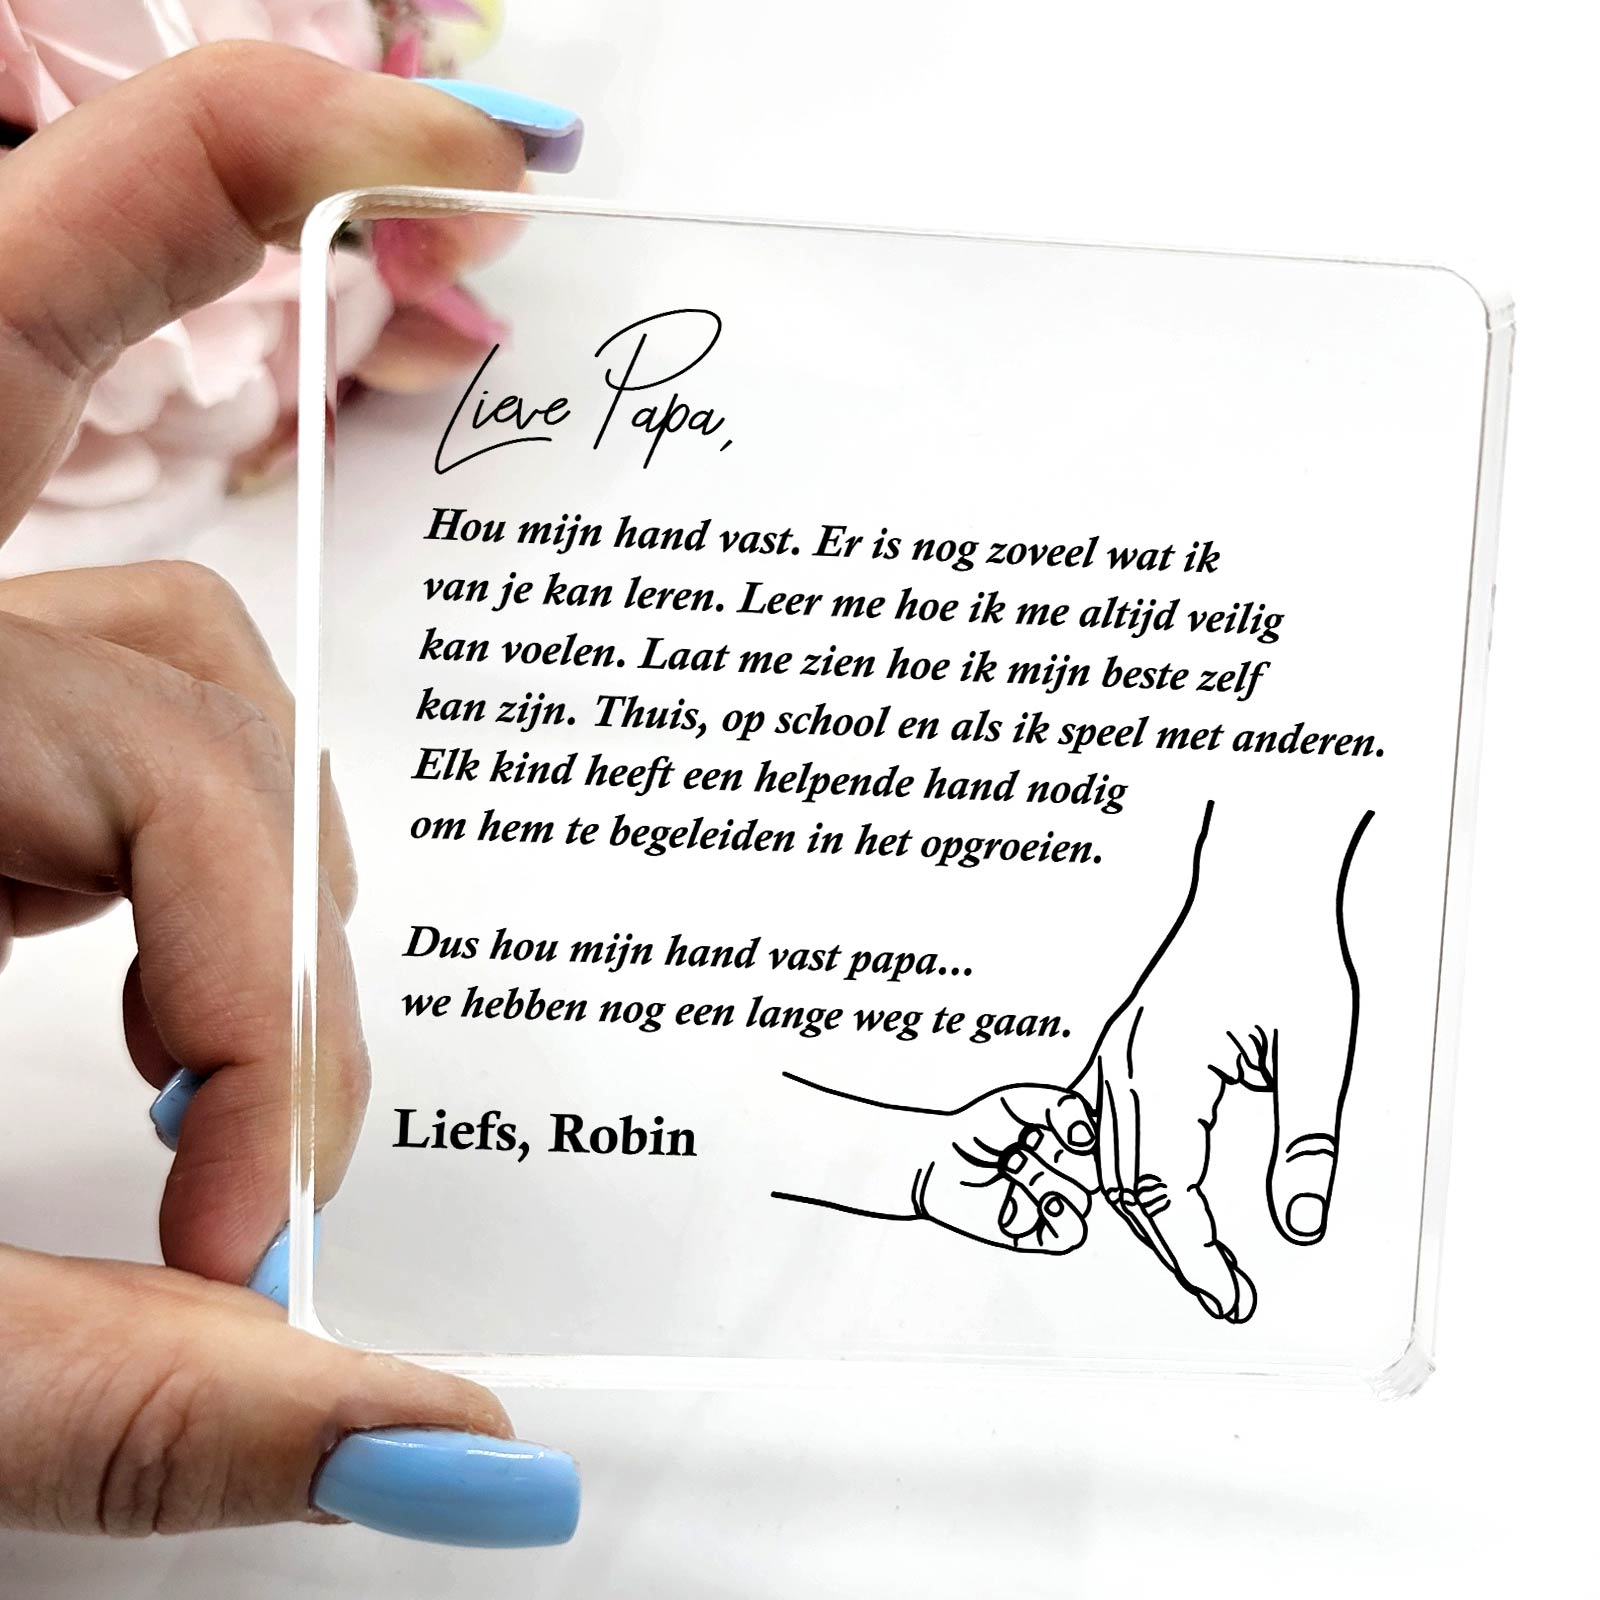 Lieve Papa,
Hou mijn hand vast. Er is nog zoveel wat ik
van je kan leren. Leer me hoe ik me altijd veilig
kan voelen. Laat me zien hoe ik mijn beste zelf
kan zijn. Thuis, op school en als ik speel met anderen.
Elk kind heeft een helpende hand nodig
om hem te begeleiden in het opgroeien.
Dus hou mijn hand vast papa...
we hebben nog een lange weg te gaan.
Liefs, Robin